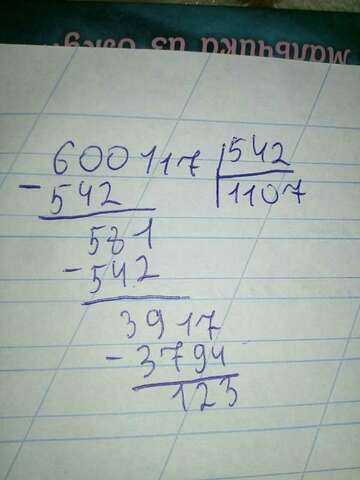 Мальчики из билу
600117 542
- 542 1107
581
- 542
3917
- 3794
123